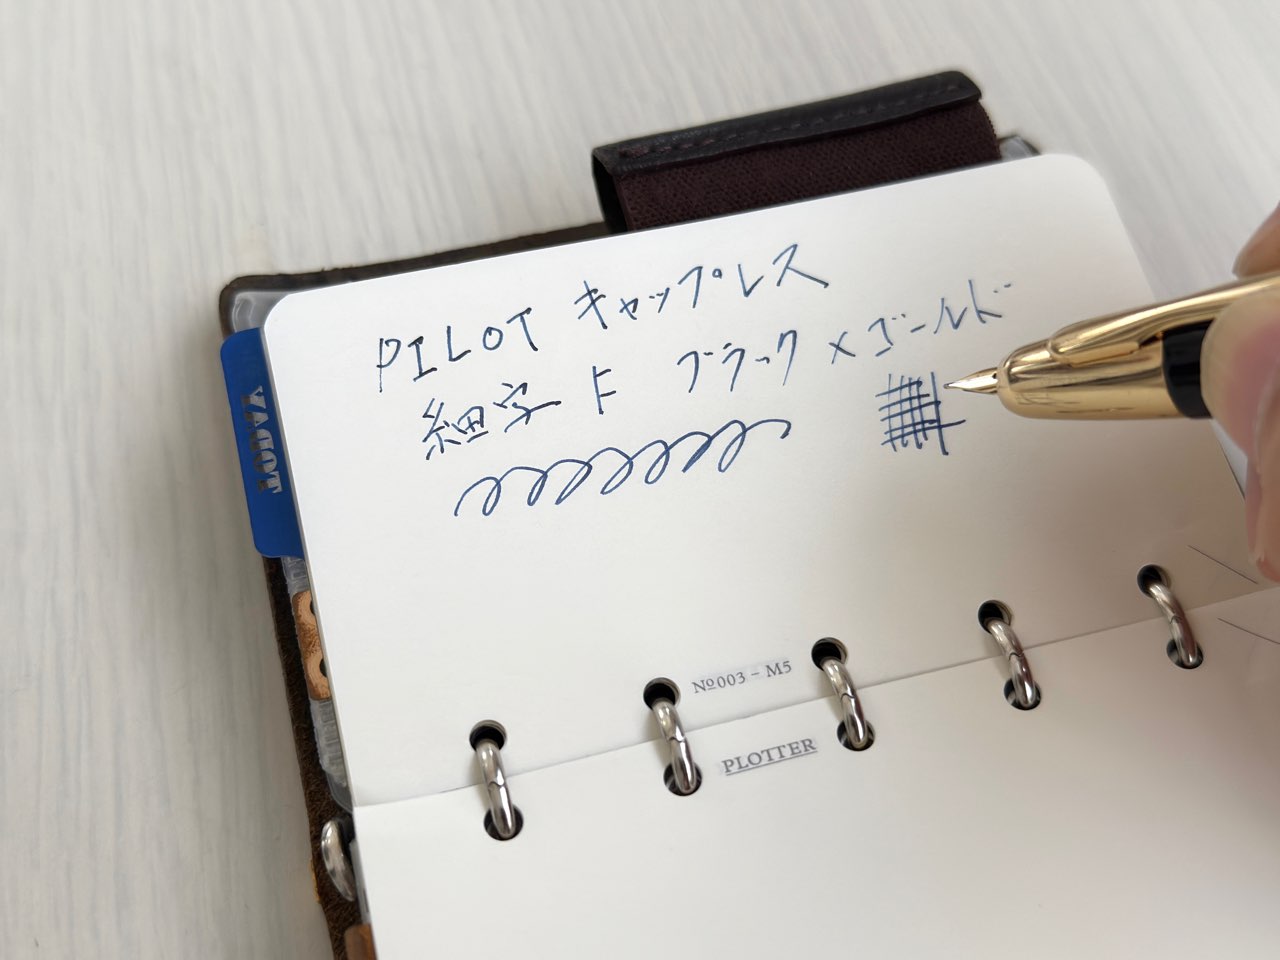 PILOT キャップレス
細字 F ブラック×ゴールド
YAGOT
№003 – M5
PLOTTER